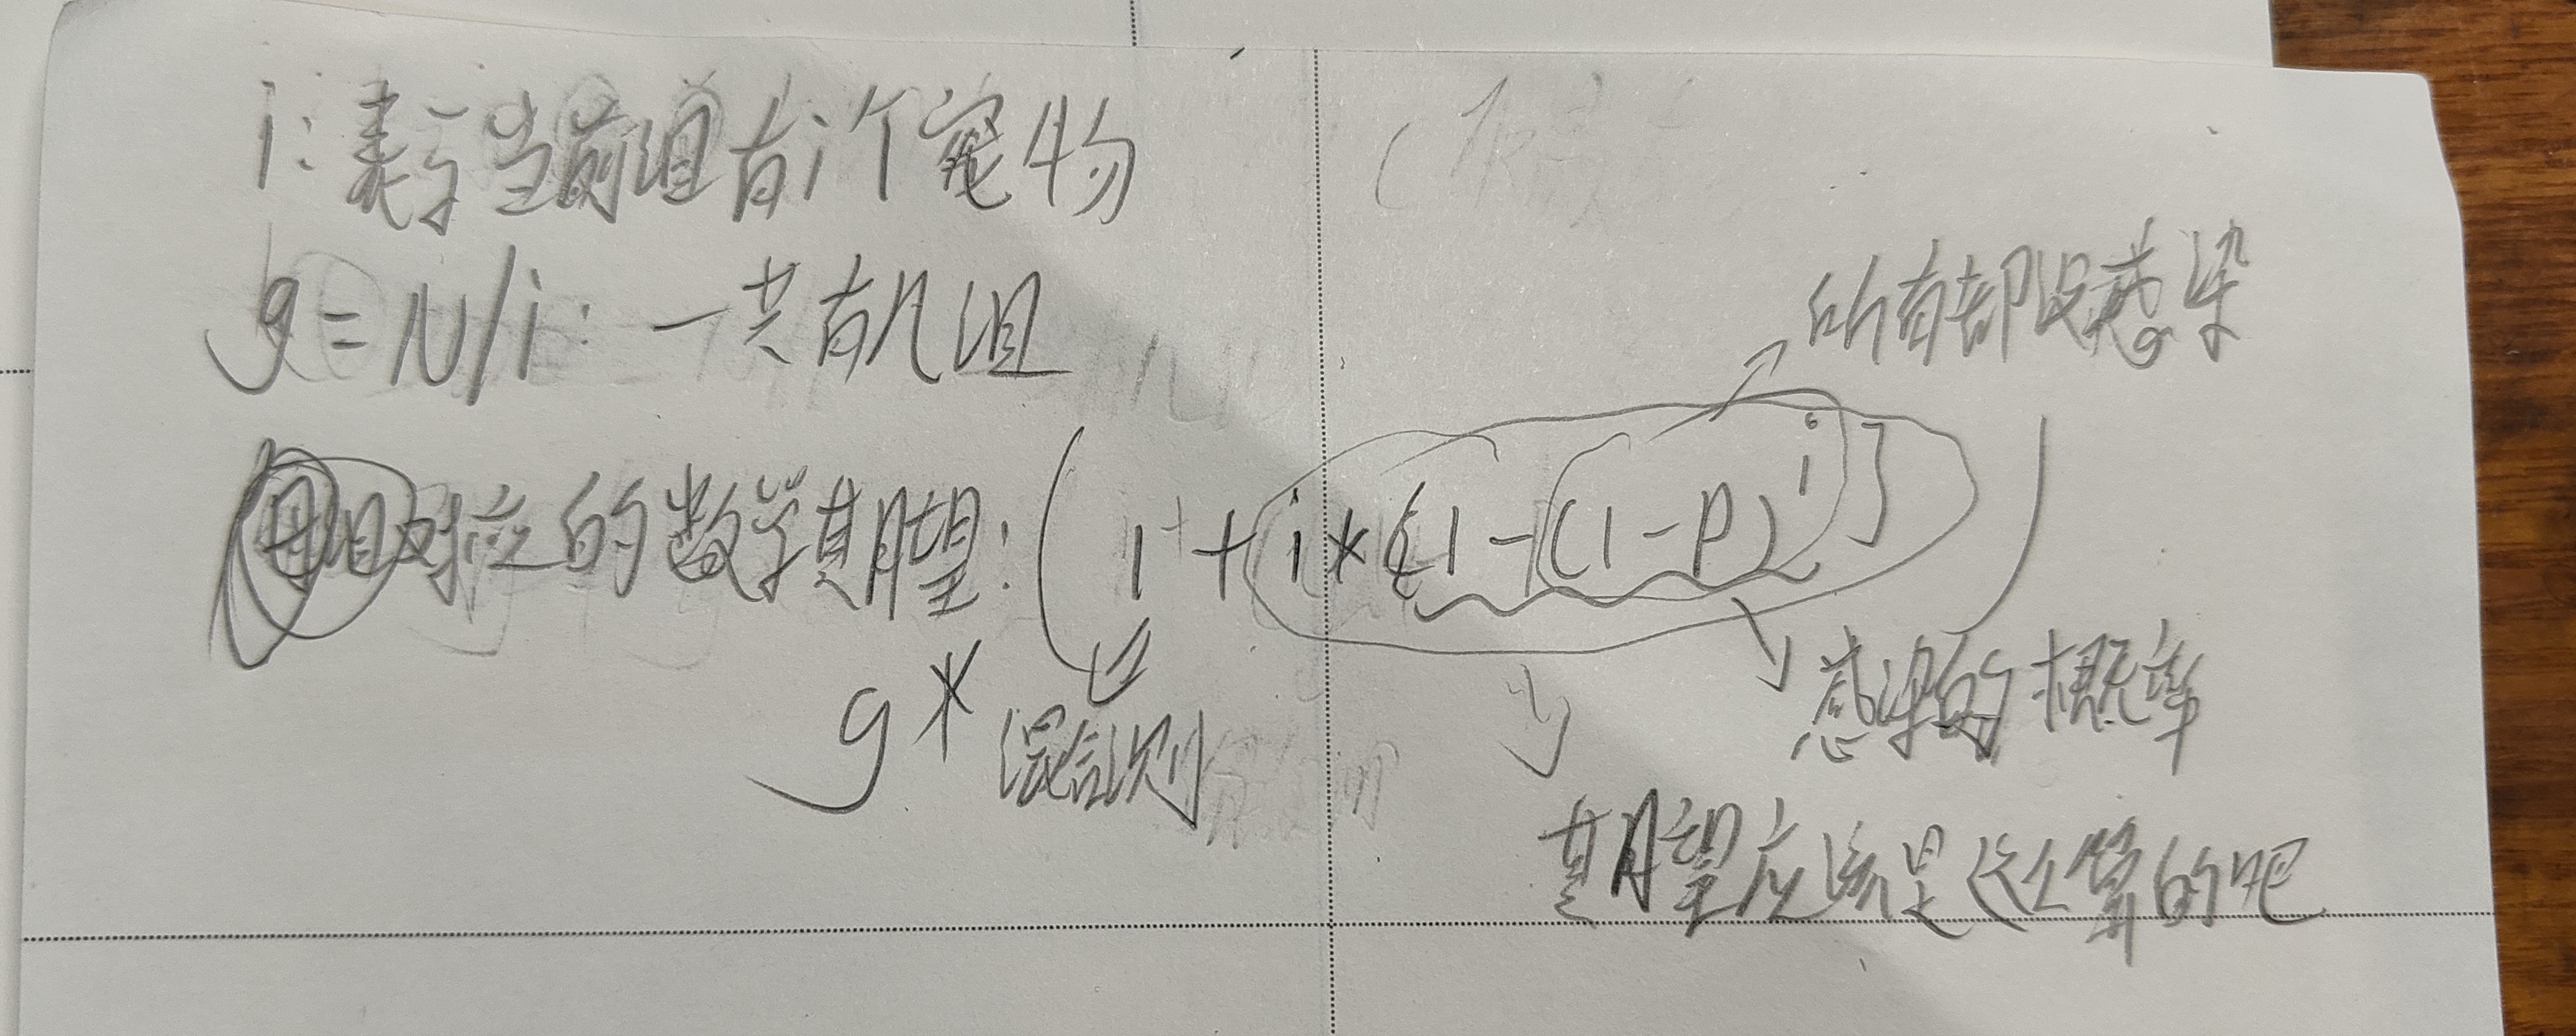 i: 表示当前组有i个宠物
g = N/i: 一共有几组
所有都没感染
每组对应的数学期望: (1 + i * [1 - (1 - P)^i])
g *
混检测
感染的概率
期望应该是这么算的吧